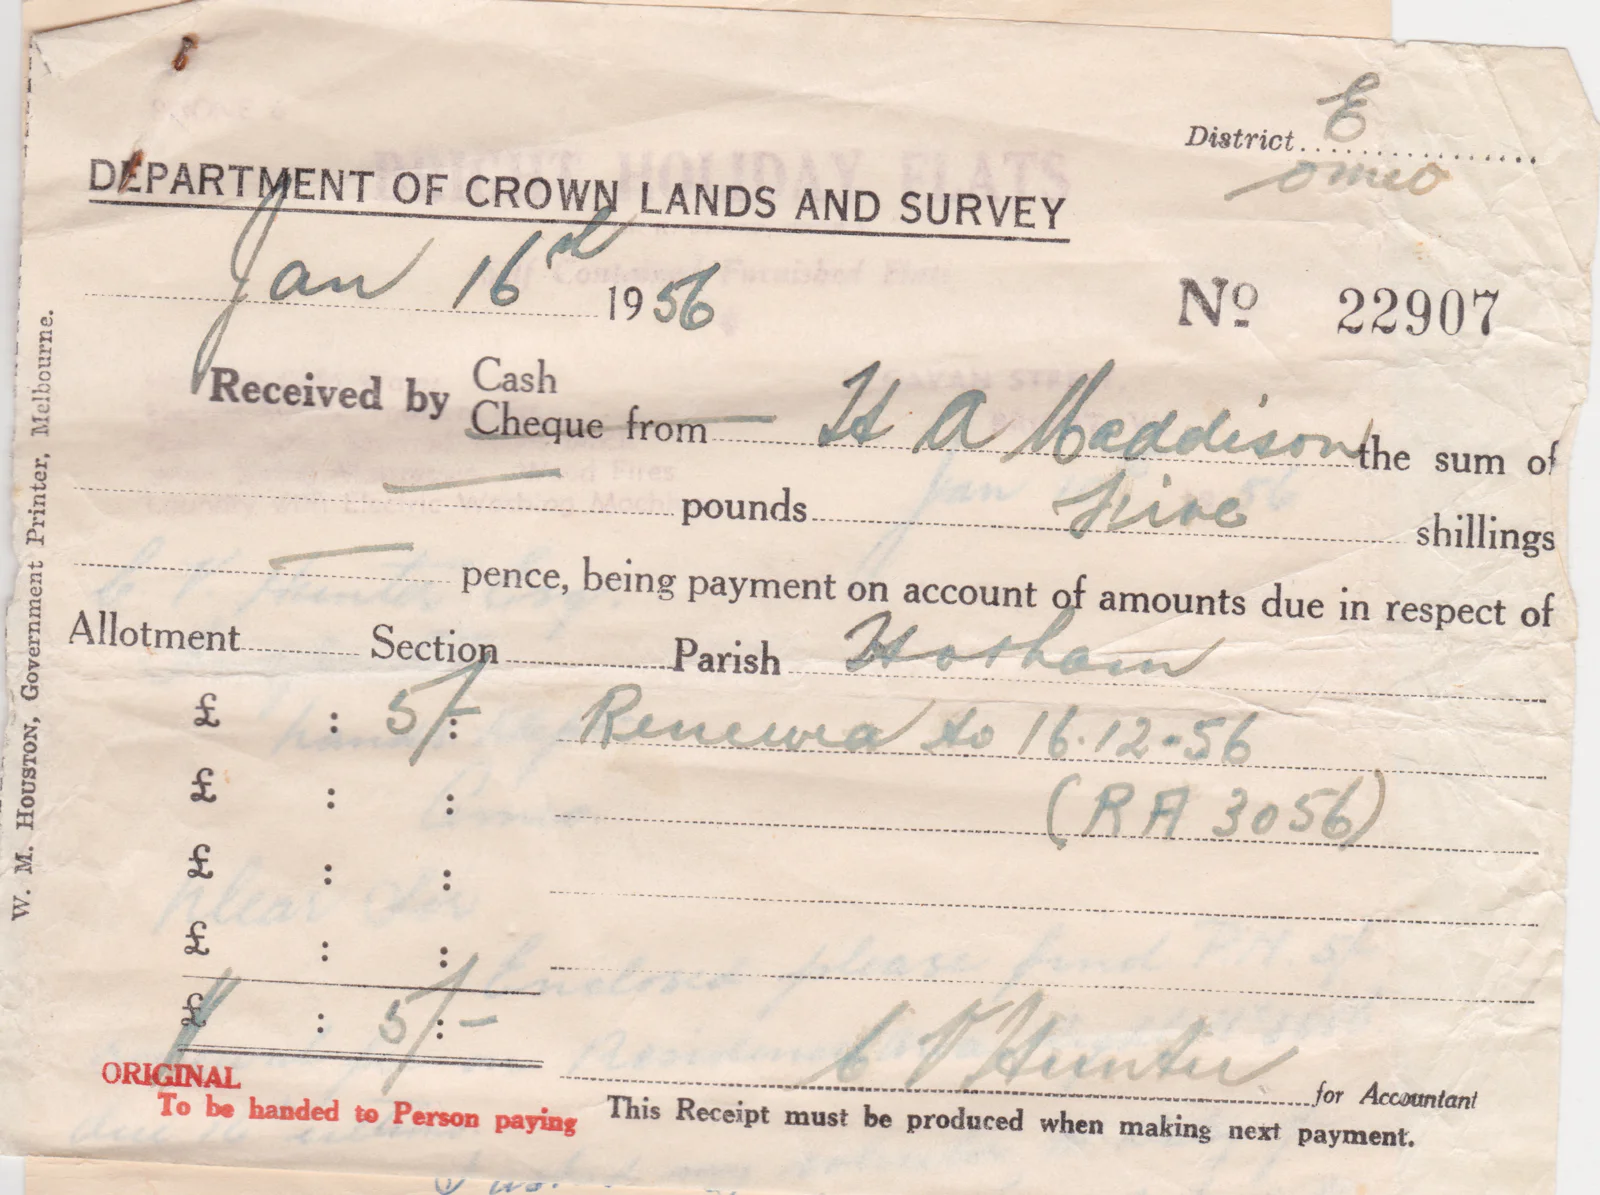 District E
Omeo
DEPARTMENT OF CROWN LANDS AND SURVEY
Jan 16th 1956
No 22907
Received by Cash
Cheque from H A Maddison the sum of
pounds five shillings
pence, being payment on account of amounts due in respect of
Allotment Section Parish Hotham
£ : 5/- : Renewal to 16.12.56
£ : : (RA 3056)
£ : :
£ : :
£ : 5/- :
C V Hunter for Accountant
ORIGINAL
To be handed to Person paying
This Receipt must be produced when making next payment.
W. M. HOUSTON, Government Printer, Melbourne.
HOLIDAY FLATS
Self Contained Furnished Flats
Jan 56
C V Hunter Esq
Omeo
Dear Sir
Enclosed please find